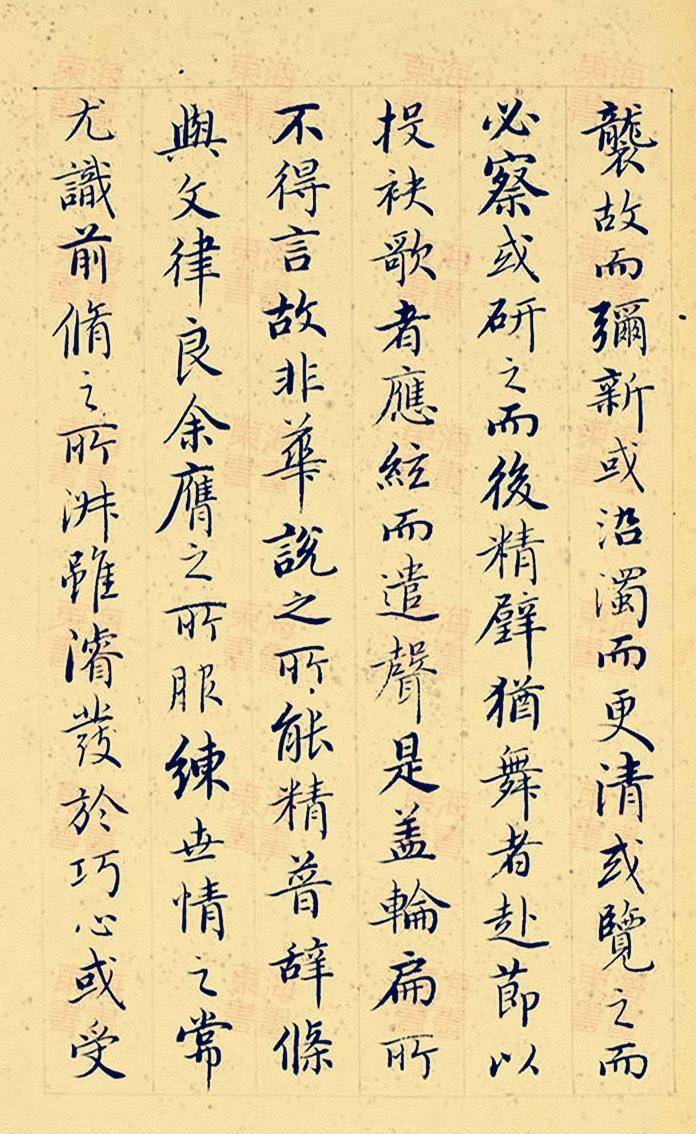 襲故而彌新或沿濁而更清或覽之而
必察或研之而後精譬猶舞者赴節以
投袂歌者應絃而遣聲是盖輪扁所
不得言故非華說之所能精普辭條
與文律良余膺之所服練世情之常
尤識前脩之所淋雖濬發於巧心或受